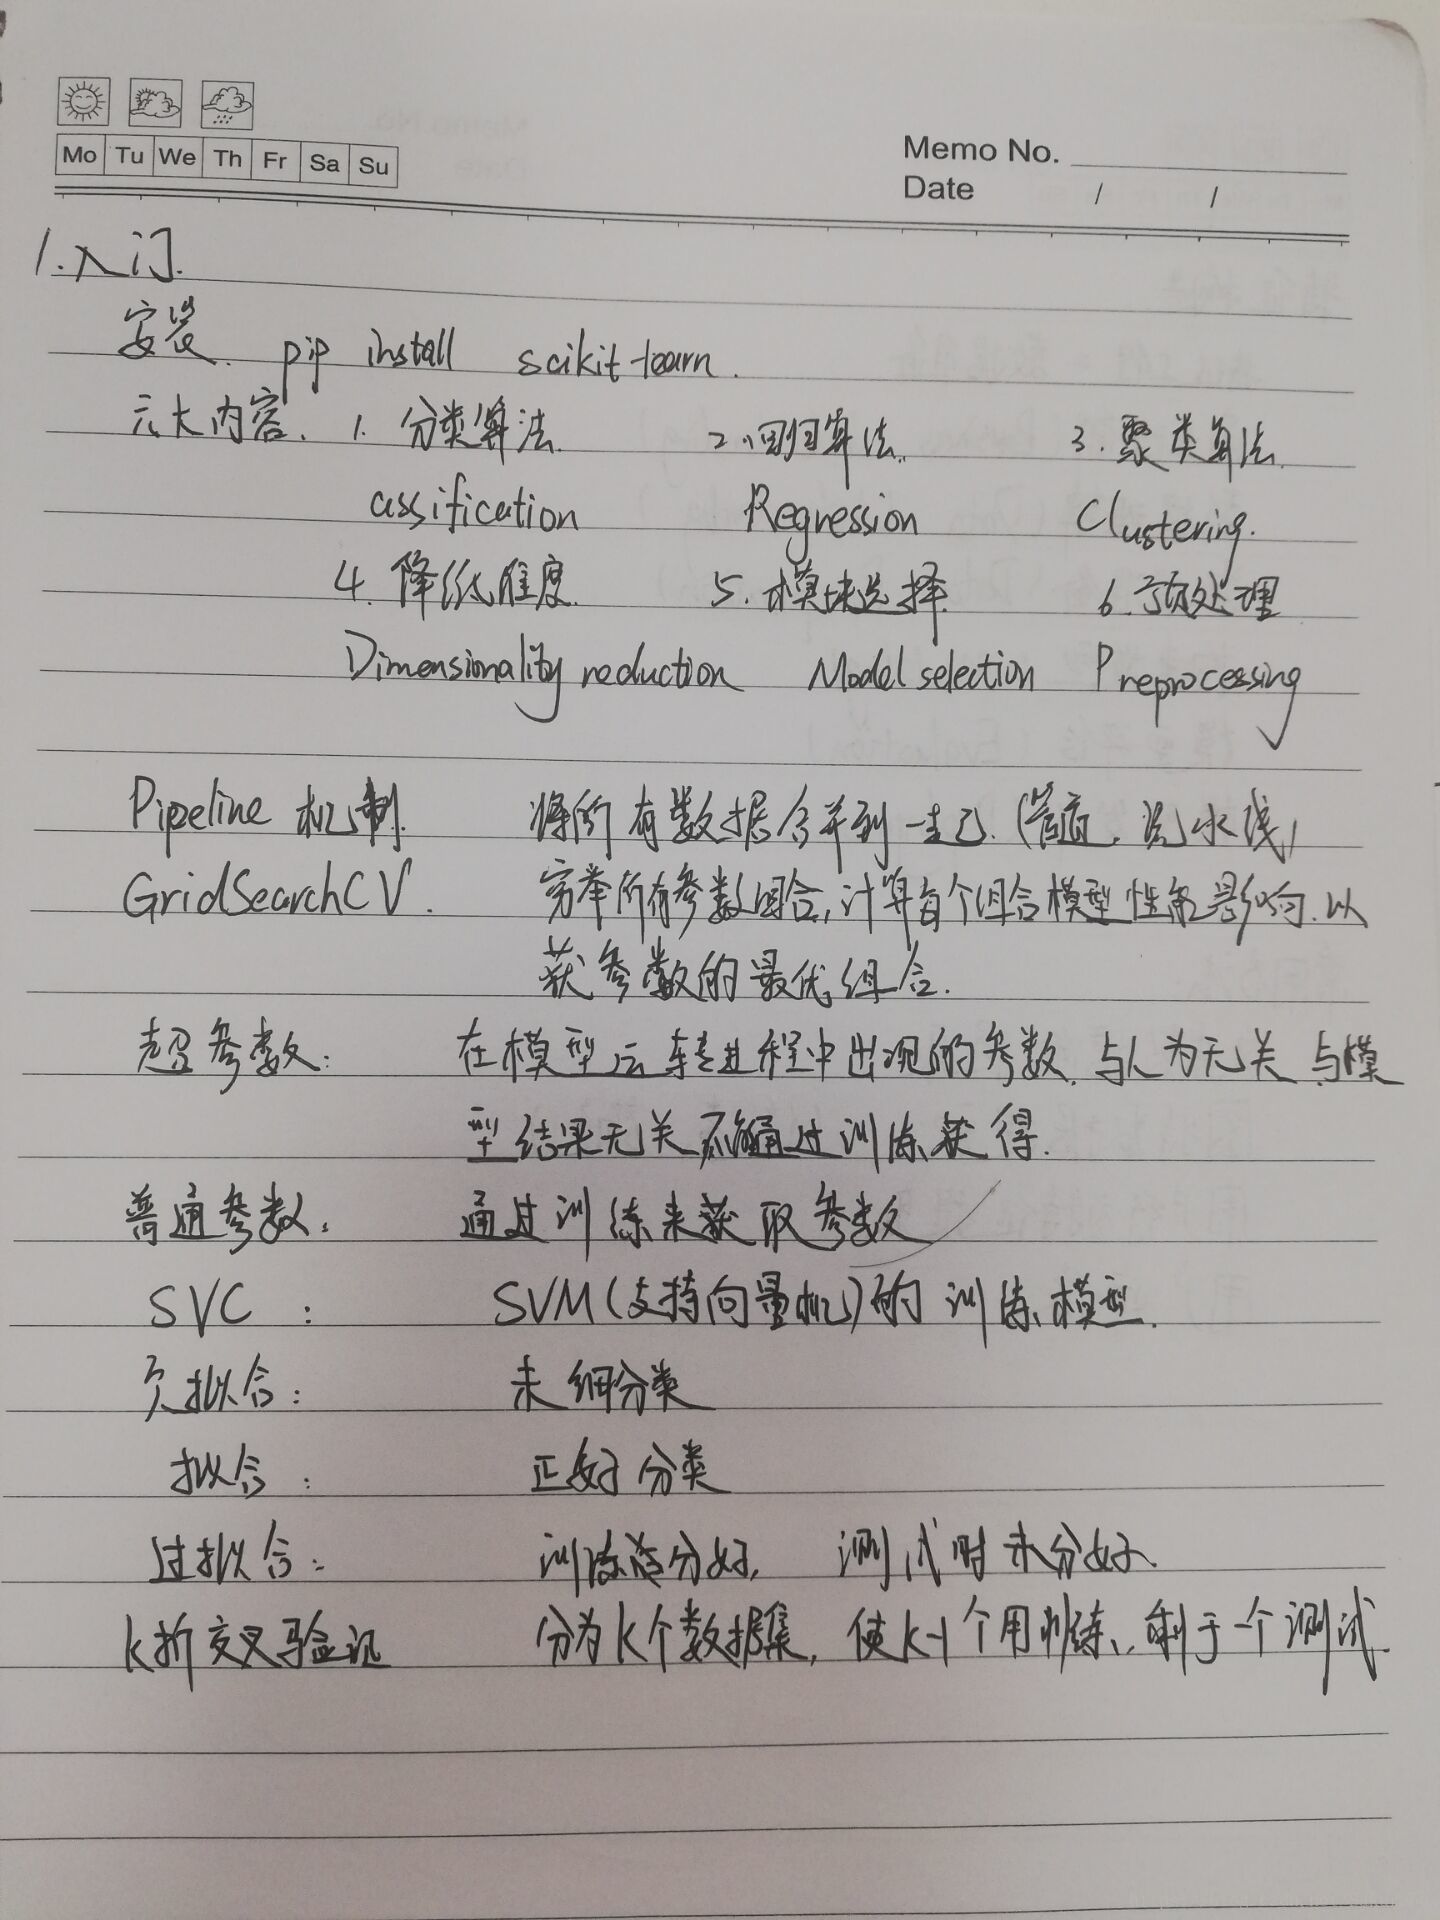 Mo Tu We Th Fr Sa Su
Memo No.
Date / /
1.入门.
安装. pip install scikit-learn.
六大内容. 1. 分类算法. 2.回归算法. 3.聚类算法.
assification Regression Clustering.
4.降低维度. 5.模块选择 6.预处理
Dimensionality reduction Model selection Preprocessing
Pipeline 机制. 将所有数据合并到一起.(管道,流水线)
GridSearchCV. 穷举所有参数组合,计算每个组合模型性能影响.以
获参数的最优组合.
超参数: 在模型运转进程中出现的参数.与人为无关 与模
型结果无关 不能通过训练获得.
普通参数: 通过训练来获取参数
SVC : SVM(支持向量机)的训练模型.
欠拟合: 未细分类
拟合: 正好分类
过拟合: 训练时分好, 测试时未分好.
k折交叉验证 分为k个数据集, 使k-1个用训练, 剩于一个测试.